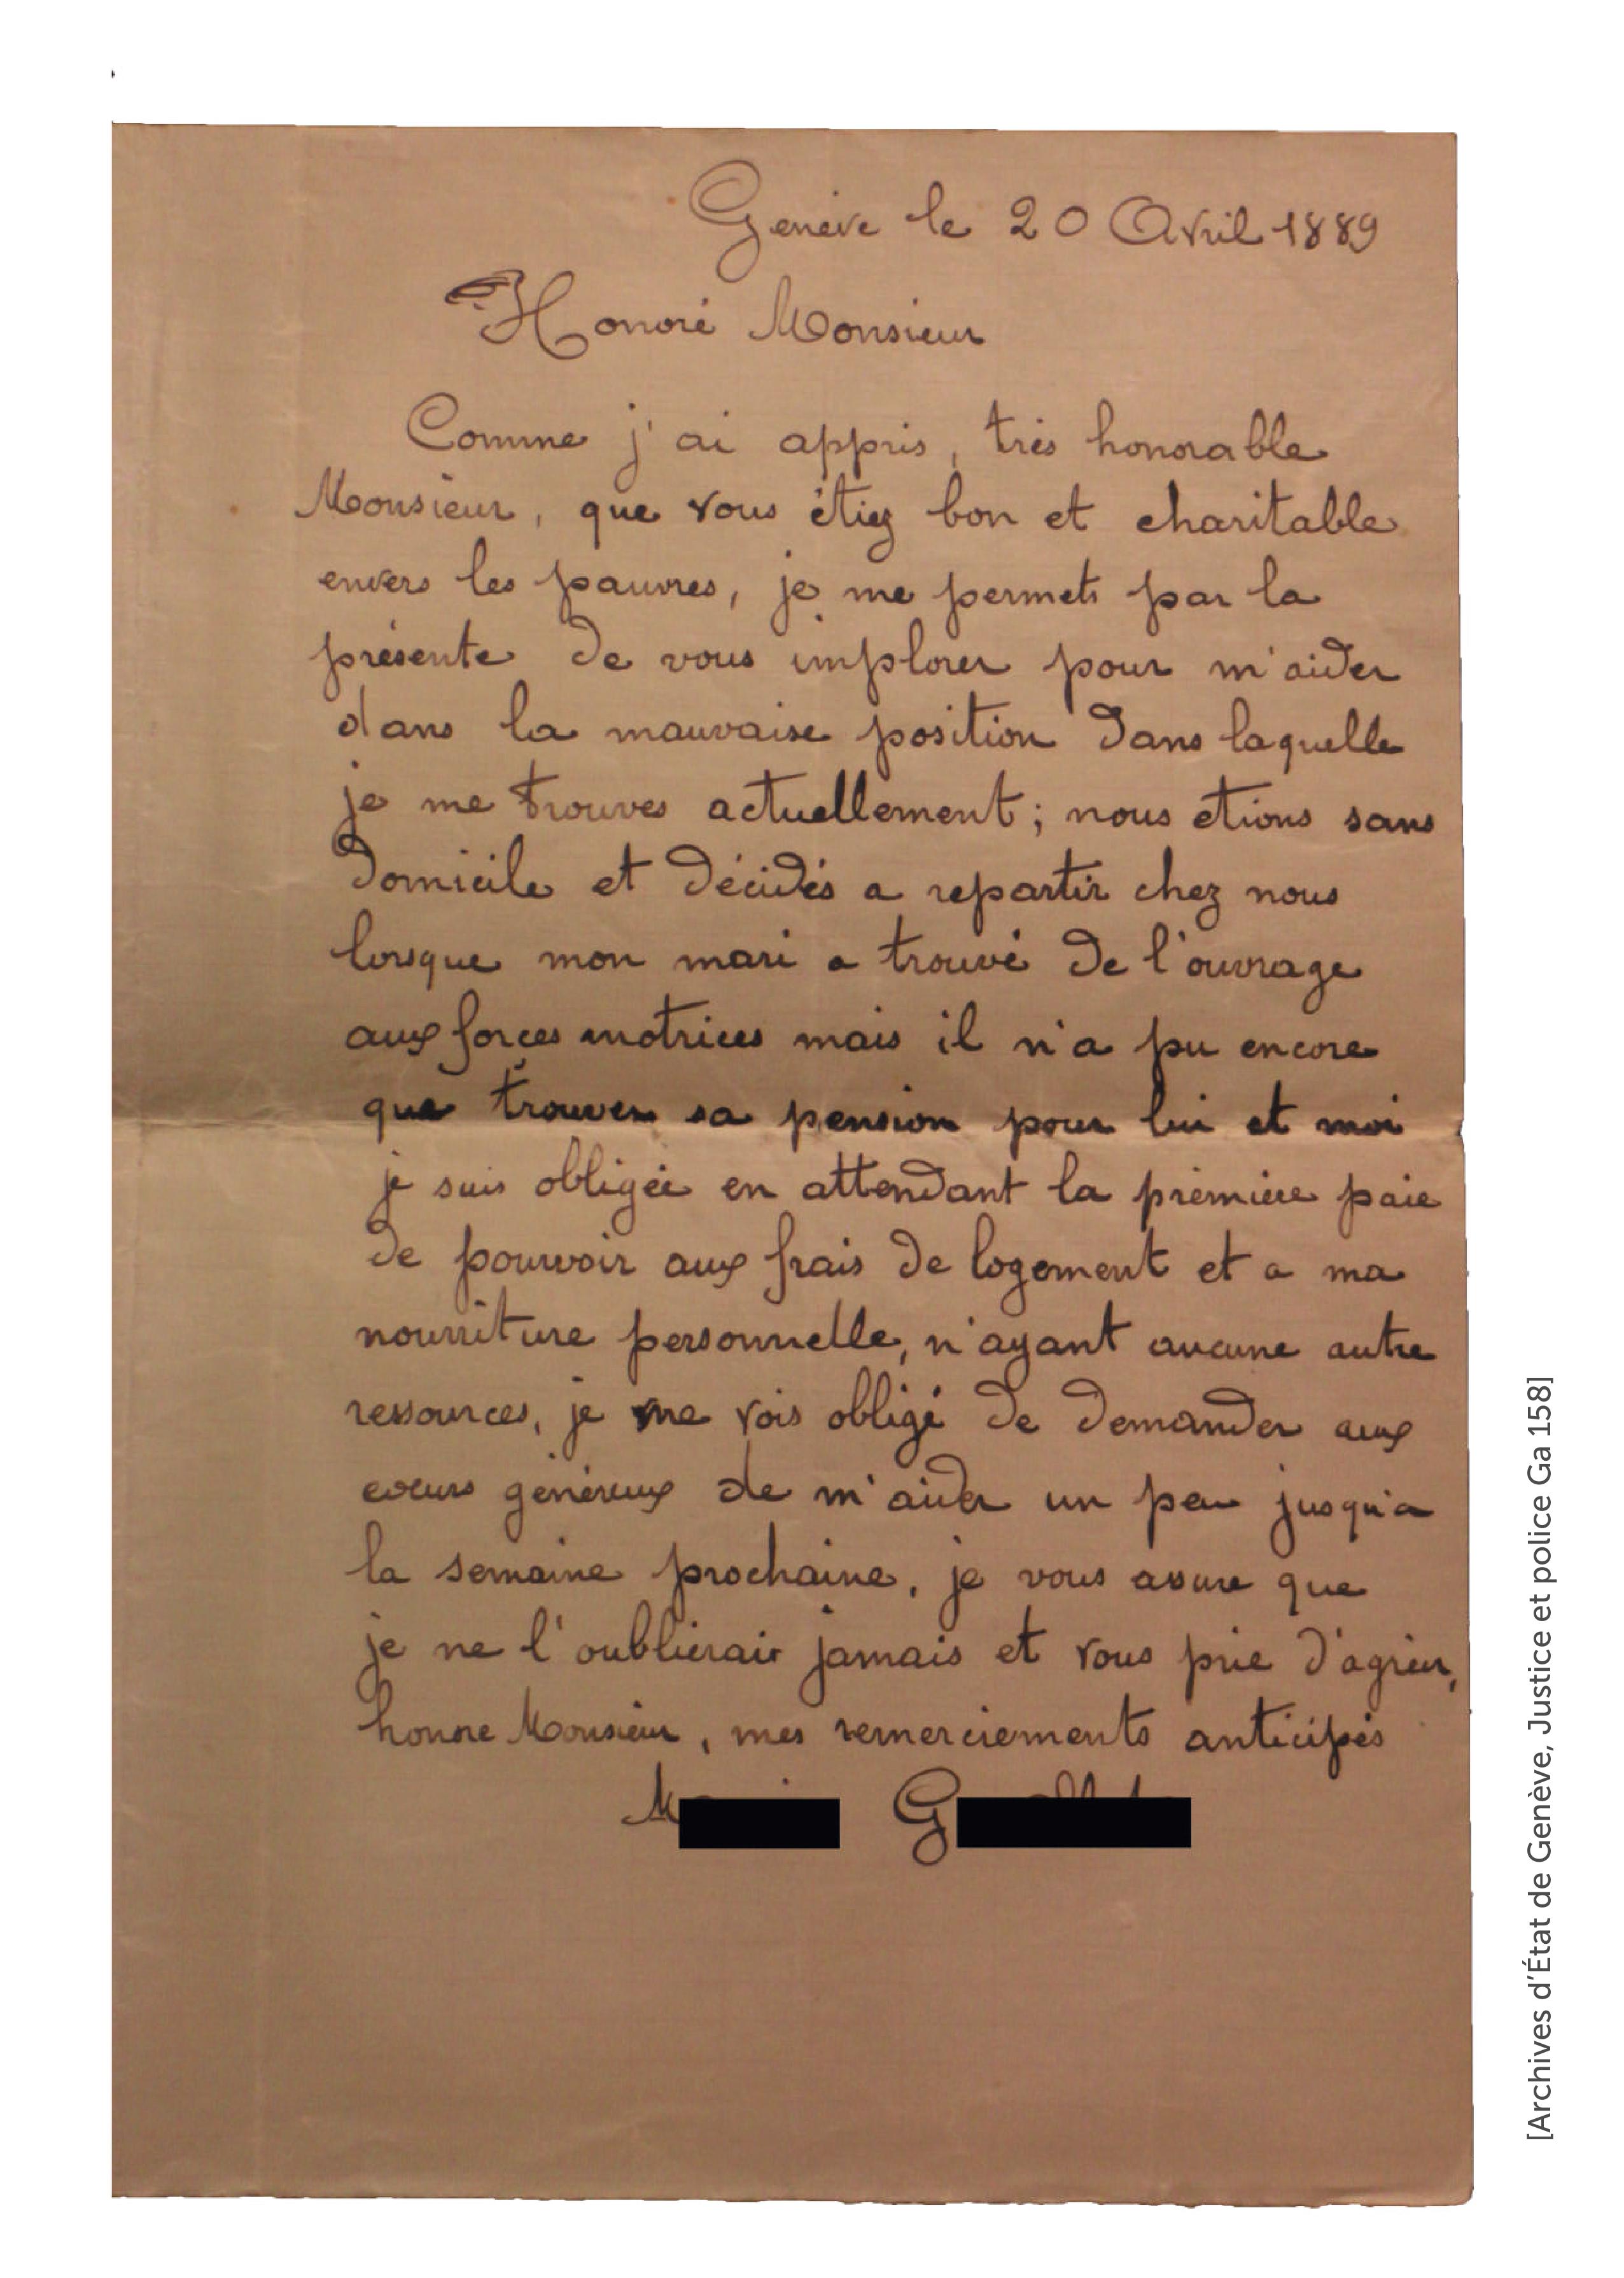 Genève le 20 Avril 1889
Honoré Monsieur
Comme j'ai appris, très honorable
Monsieur, que vous étiez bon et charitable
envers les pauvres, je me permets par la
présente de vous implorer pour m'aider
dans la mauvaise position dans laquelle
je me trouves actuellement; nous etions sans
domicile et décidés a repartir chez nous
lorsque mon mari a trouvé de l'ouvrage
aux forces motrices mais il n'a pu encore
que trouver sa pension pour lui et moi
je suis obligée en attendant la prèmière paie
de pouvoir aux frais de logement et a ma
nourriture personnelle, n'ayant aucune autre
ressources, je me vois obligé de demander aux
coeurs généreux de m'aider un peu jusqu'a
la semaine prochaine, je vous assure que
je ne l'oublierais jamais et vous prie d'agréer,
honore Monsieur, mes remerciements anticipés
M G
[Archives d'État de Genève, Justice et police Ga 158]